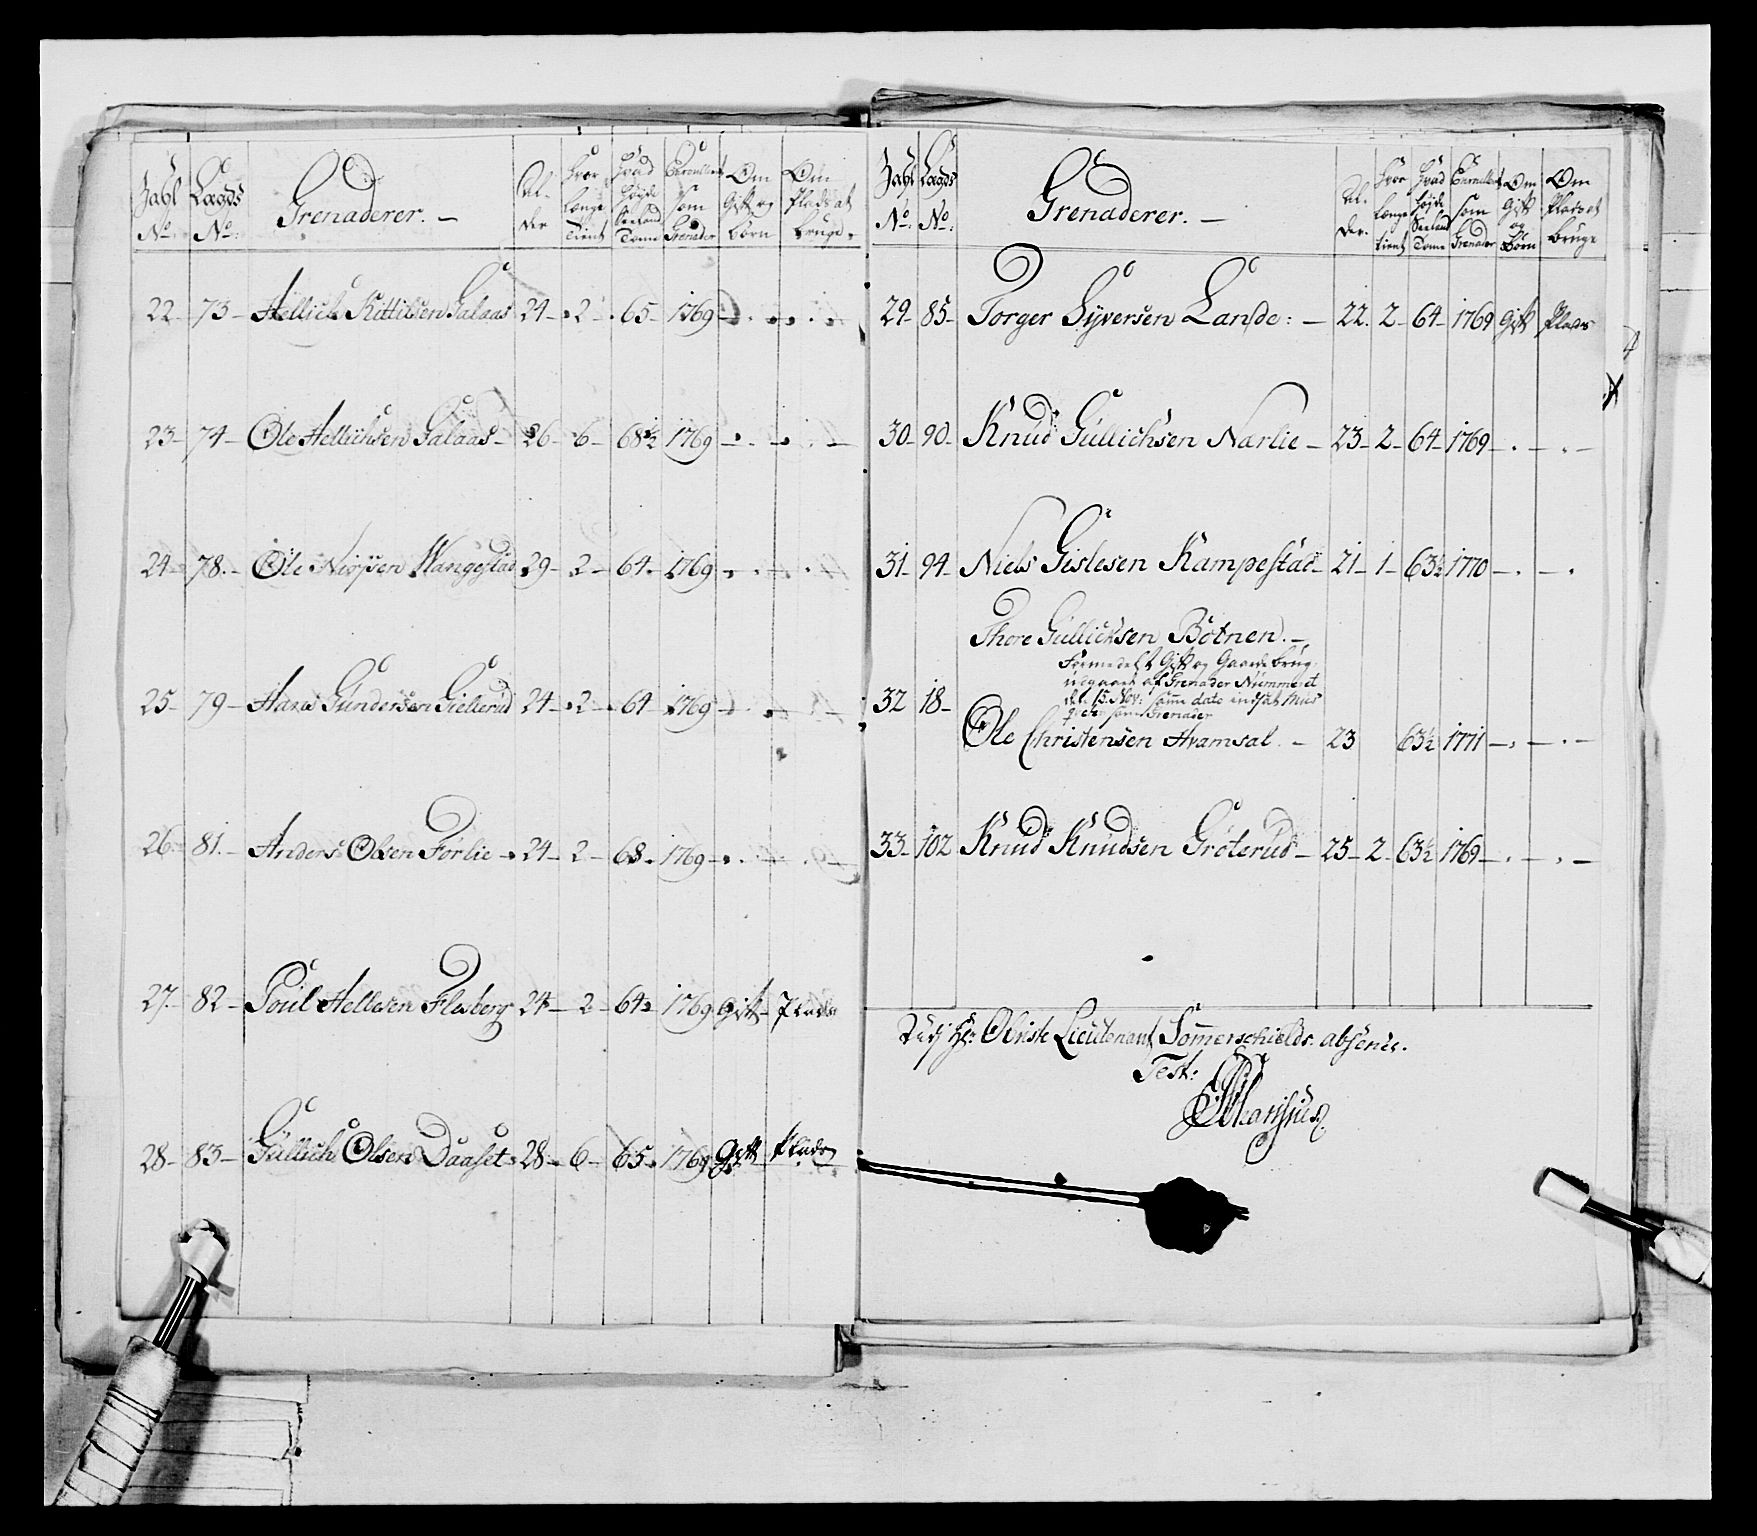 Zahl No.
Lægds No.
Grenaderer.
Al-der
Hvor længe Tient
Hvad Høyde Siæland Tome
Enroullert som Grenader
Om Gift og Børn
Om Plads at bruge.
22 - 73 - Hellich Kittilsen Galaas 24 - 2 - 65 - 1769
23 - 74 - Ole Hellichsen Galaas - 26 - 6 - 68½ 1769
24 - 78 - Ole Niriisen Wangestad 29 - 2 - 64 - 1769
25 - 79 - Hans Gundersen Gielterud 24 - 2 - 64 1769
26 - 81 - Anders Olsen Forlie - 24 - 2 - 68 - 1769
27 - 82 - Poul Hellesen Flesberg 24 - 2 - 64½ 1769 Gift - Plads
28 - 83 - Gullich Olsen Daaset 28 - 6 - 65 - 1769 Gift Plads
Zahl No.
Lægds No.
Grenaderer. -
Al-der.
Hvor længe tient
Hvad høyde Siæland Tome
Enroullert som Grenader
Om Gift og Børn
Om Plads at bruge
29 - 85 - Torger Syversen Lande: - 22. 2 - 64 - 1769 Gift Plads
30 - 90 - Knud Gullichsen Narlie - 23 - 2 - 64 - 1769
31 - 94 - Niels Gislesen Kampestad - 21 - 1 - 63½ 1770
Thore Gullichsen Botnen. -
Formedelst Gift og Gaardebrug
udgaaet af Grenader Nummeret
d. 15 Nov: samme dato indsat Mus
32 18 - som Grenader
Ole Christensen Hvamsal. - 23 63½ 1771
33 - 102 Knud Knudsen Grøterud - 25 - 2 - 63½ 1769
Udj Hr: Obrist Lieutenant Sommerschields absence.
Test: